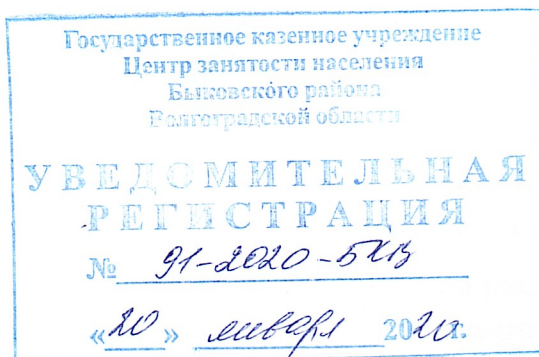 Государственное казенное учреждение
Центр занятости населения
Быковского района
Волгоградской области
УВЕДОМИТЕЛЬНАЯ
РЕГИСТРАЦИЯ
№ 91-2020-БКВ
«20» января 2020г.